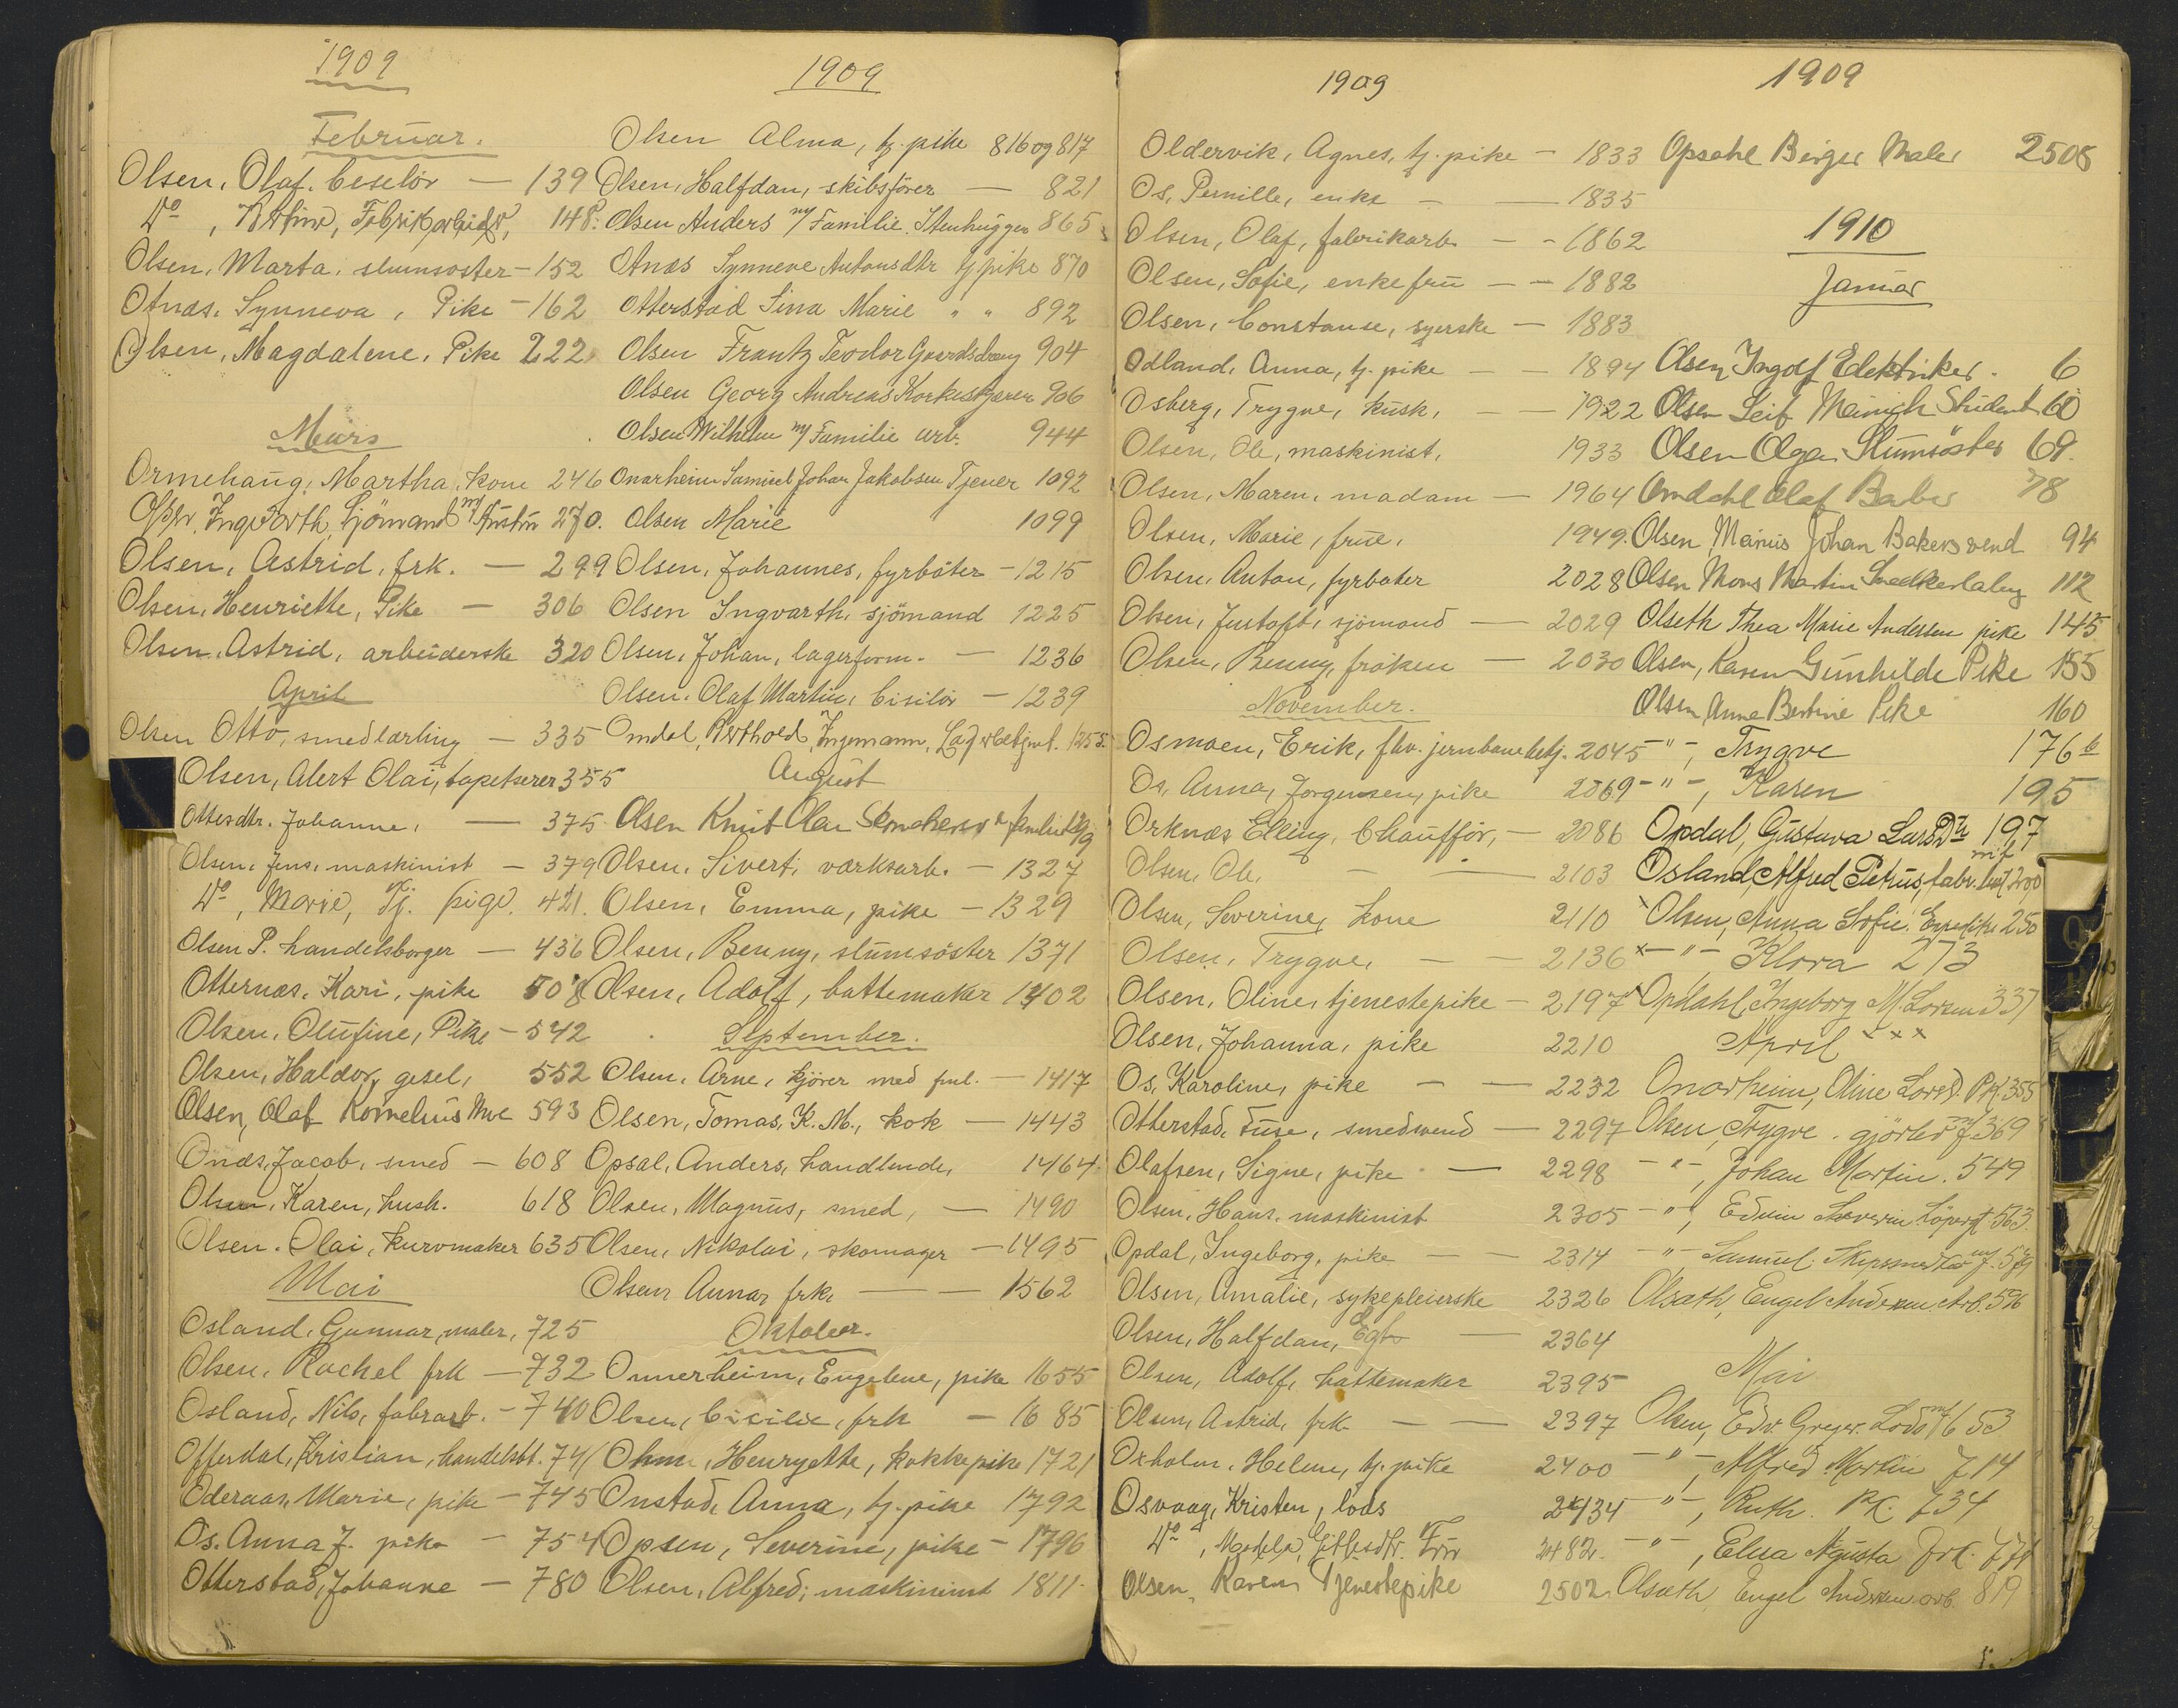 1909
Februar.
Olsen, Olaf. Ceselör — 139
Do, Fabrikarbeider, 148.
Olsen, Marta, slumsøster — 152
Otnæs, Synneva, Pike — 162
Olsen, Magdalene, Pike 222
Mars
Ormehaug, Martha, kone 246
Olsen, Ingvarth, Sjömand m/ Hustru 270.
Olsen, Astrid, frk. — 299
Olsen, Henriette, Pike — 306
Olsen, Astrid, arbeiderske 320
April
Olsen Otto, smedlærling — 335
Olsen, Alert Olai, tapetserer 355
Ottesdtr. Johanne, — 375
Olsen, Jens, maskinist — 379
Do, Marie, Tj. pige. 421.
Olsen P. handelsborger — 436
Otternæs, Kari, pike 508
Olsen, Olufine, Pike — 542
Olsen, Haldor, gesel, 552
Olsen, Olaf Kornelius 593
Onæs, Jacob, smed — 608
Olsen, Karen, hush. 618
Olsen. Olai, kurvmaker 635
Mai
Osland, Gunnar, maler, 725
Olsen, Rachel frk — 732
Osland, Nils, fabrarb. — 740
Offerdal, Kristian, handelsbt. 741
Oderaas, Marie, pike — 745
Os. Anna J. pike — 754
Otterstad, Johanne — 780
1909
Olsen Alma, tj. pike 816 og 817
Olsen, Halfdan, skibsförer — 821
Olsen Anders m/ Familie. Stenhugger 865
Otnæs Synneve Antonsdtr tj pike 870
Otterstad Sina Marie " " 892
Olsen Frantz Teodor Gaardsdreng 904
Olsen Georg Andreas Korkeskjærer 906
Olsen Wilhelm m/ Familie arb. 944
Onarheim Samuel Johan Jakobsen Tjener 1092
Olsen Marie 1099
Olsen, Johannes, fyrböter — 1215
Olsen Ingvarth, sjömand 1225
Olsen, Johan, lagerform. — 1236
Olsen. Olaf Martin, Cisilör — 1239
Omdal, Berthold Ingemann, Lagerbetjent. 1255.
August
Olsen Knut Olai
Olsen, Sivert, værksarb. — 1327
Olsen, Emma, pike — 1329
Olsen, Benny, slumsöster 1371
Olsen, Adolf, hattemaker 1402
September.
Olsen, Arne, kjörer med fml. — 1417
Olsen, Tomas, K. M., kok — 1443
Opsal, Anders, handlende, 1464.
Olsen, Magnus, smed, — 1490
Olsen, Nikolai, skomager — 1495
Olsen Anna, frk. — 1562
Oktober.
Onnerheim, Engelene, pike 1655
Olsen, Cicilie, frk — 1685
Ohm, Henryette, kokkepike 1721
Onstad, Anna, tj. pike 1792
Opsen, Severine, pike — 1796
Olsen, Alfred, maskinimt 1811.
1909
Oldervik, Agnes, tj. pike — 1833
Os, Pernille, enke — 1835
Olsen, Olaf, fabrikarb. — 1862
Olsen, Sofie, enkefru — 1882
Olsen, Constanse, syerske — 1883
Odland, Anna, tj. pike — 1894
Osberg, Trygve, kusk, — 1922
Olsen, Ole, maskinist, 1933
Olsen, Maren, madam — 1964
Olsen, Marie, frue, 1949.
Olsen, Anton, fyrböter 2028
Olsen, Justoft, sjömand — 2029
Olsen, Benny, fröken — 2030
November.
Osmoen, Erik, fhv. jernbanebetj. 2045
Os, Anna, Jorgensen, pike 2069
Orknæs Elling, Chaufför, — 2086
Olsen, Ole, — 2103
Olsen, Severine, kone 2110
Olsen, Trygve, — 2136
Olsen, Oline, tjenestepike — 2197
Olsen, Johanna, pike 2210
Os, Karoline, pike — 2232
Otterstad, Tuse, smedsvend — 2297
Olafsen, Signe, pike — 2298
Olsen, Hans, maskinist 2305
Opdal, Ingeborg, pike — 2314
Olsen, Amalie, sykepleierske 2326
Olsen, Halfdan, — 2364
Olsen, Adolf, hattemaker 2395
Olsen, Astrid, frk. — 2397
Oxholm, Helene, tj. pike 2400
Osvaag, Kristen, lods 2434
Do, Frü 2482.
Olsen, Karen Tjenestepike 2502
1909
Opsahl Birger Maler 2508
1910
Januar
Olsen Ingolf Elektriker. 6
Olsen Leif Meinich Student 60
Olsen Olga Slumsöster 69.
Omdahl Olaf Barber 78
Olsen Marius Johan Bakersvend 94
Olsen Mons Martin Snedkerlæling 112
Olseth Thea Marie Andersen pike 145
Olsen, Karen Gunhilde Pike 155
Olsen Anne Bertine Pike 160
— " —, Trygve 176 b
— " —, Karen 195
Opdal, Gustava LarsDtr 197
Osland, Alfred Petrus, fabr. 200
x Olsen, Anna Sofie. 250
x — " — Klara 273
x Opdahl, Ingeborg M. Larsen 337
April x x x
Onarheim, Oline LarsD. Pk. 355
Olsen, Trygve. gjörtler m/f 369
— " —, Johan Martin. 549
— " —, Edvin Severin 563.
— " — Samuel.
Olsæth, Engel Andersen Arb. 576
Mai
Olsen, Edv. Greger. Lods m/f 653
— " —, Alfred Martin 714
— " —, Ruth. Pk. 734
— " —, Elisa Agusta frk. 771
Olsæth, Engel Andersen arb. 819